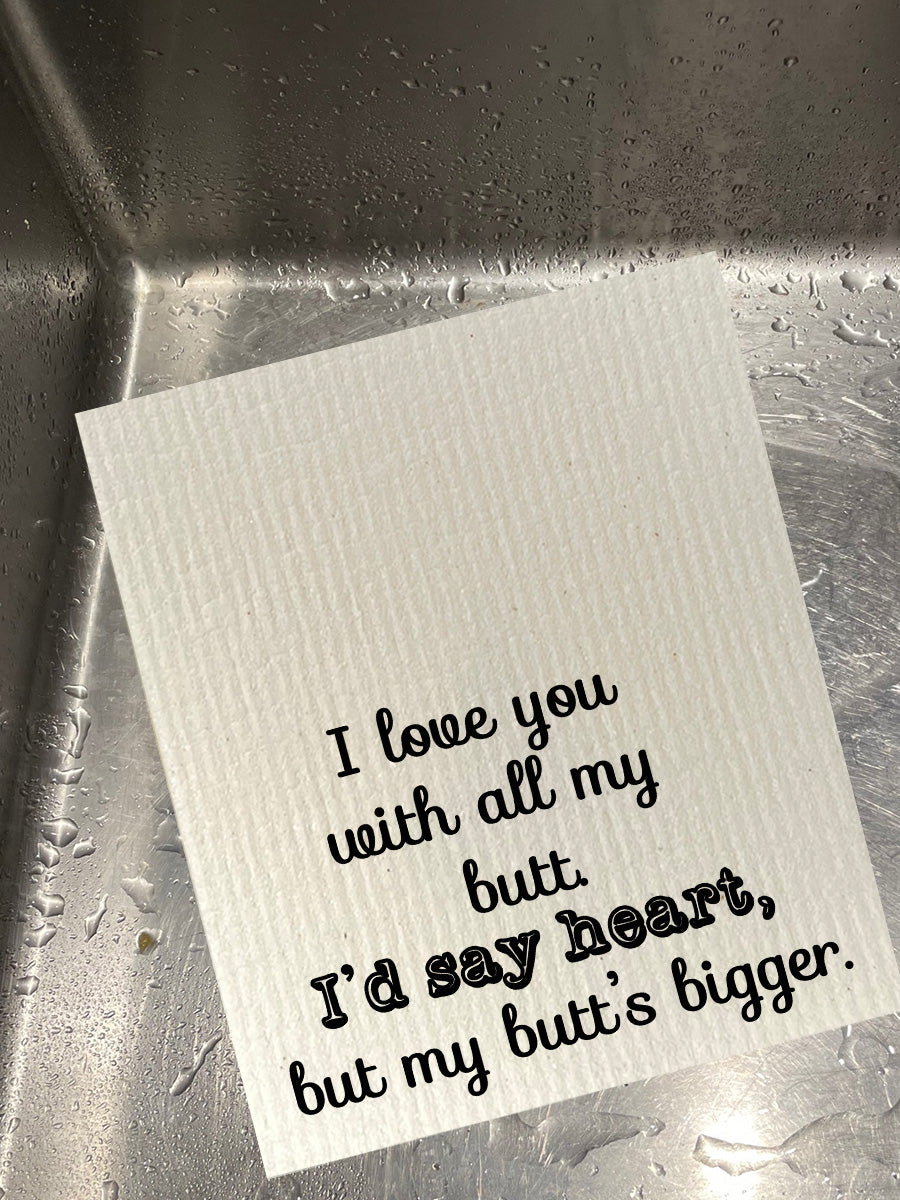 I love you
with all my
butt.
I'd say heart,
but my butt's bigger.